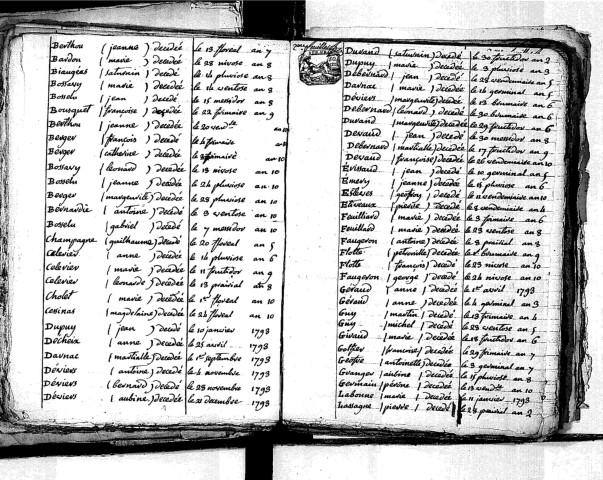 Berthou (jeanne) decedée le 13 floreal an 7
Bardon (marie) decedée le 28 nivose an 8
Biaugeas (saturnin) decedé le 14 pluviose an 8
Bossavy (marie) decedée le 14 ventose an 8
Bosselu (jean) decedé le 15 messidor an 8
Bousquet (françoise) decedée le 22 frimaire an 9
Berthou (jeanne) decedée le 20 vend.re an
Berger (françois) decedé le 4 frimaire
Berger (catherine) decedée le frimaire an 10
Bossavy (leonard) decedé le 13 nivose an 10
Bosselu (jeanne) decedée le 24 pluviose an 10
Berger (margeurite) decedée le 28 pluviose an 10
Bernardie (antoine) decedé le 9 ventose an 10
Bosselu (gabriel) decedé le 7 messidor an 10
Champagne (guilhaume) decedé le 20 floreal an 5
Celevier (anne) decedée le 14 pluviose an 6
Celevier (marie) decedée le 11 fruitidor an 9
Celevier (leonard) decedé le 13 prairial an 8
Cholet (marie) decedée le 1er floreal an 10
Cesinas (magdelaine) decedée le 24 floreal an 10
Dupuy (jean) decedé le 10 janvier 1793
Decheix (anne) decedée le 25 avril 1793
Darnac (martialle) decedée le 1er septembre 1793
Déviers (antoine) decedé le 4 novembre 1793
Déviers (bernard) decedé le 28 novembre 1793
Déviers (aubine) decedée le 21 decembre 1793
Durand (saturnin) decedé le 30 fruitidor an 2
Dupuy (marie) decedée le 3 pluviose an 3
Debernard (jean) decedé le 28 vendemaire an 5
Darnac (marie) decedée le 14 germinal an 5
Déviers (margeurite) decedée le 13 brumaire an 6
Debernard (leonard) decedé le 30 brumaire an 6
Durand (margeurite) decedée le 29 fruitidor an 6
Devaud (jean) decedé le 30 messidor an 8
Debernard (martialle) decedée le 17 fruitidor an 9
Devaud (françoise) decedée le 26 vendemaire an 10
Évissaud (jean) decedé le 10 germinal an 5
Émery (jeanne) decedée le 15 pluviose an 6
Estèves (geofroy) decedé le 11 vendemiaire an 10
Étiveaux (pierre) decedé le 8 vendemaire an 4
Feuilliard (marie) decedée le 3 frimaire an 6
Feuillard (marie) decedée le 23 ventose an 8
Faugeron (antoine) decedé le 8 prairial an 8
Flotte (petronille) decedée le brumaire an 9
Flotte (françois) decedé le 23 nivose an 10
Faugeron (george) decedé le 24 nivose an 10
Géraud (anne) decedée le 1er avril 1793
Géraud (anne) decedée le 4 germinal an 3
Guy (martin) decedé le 13 frimaire an 4
Guy (michel) decedé le 23 ventose an 5
Giraud (marie) decedée le 18 fruitidor an 6
Golfier (françoise) decedée le 29 frimaire an 7
Geofre (antoinette) decedée le 3 germinal an 7
Granger (aubine) decedée le 15 pluviose an 8
Germain (perine) decedée le 13 vend.re an 10
Labonne (marie) decedée le 11 janvier 1793
Lassagne (pierre) decedé le 28 prairial an 2